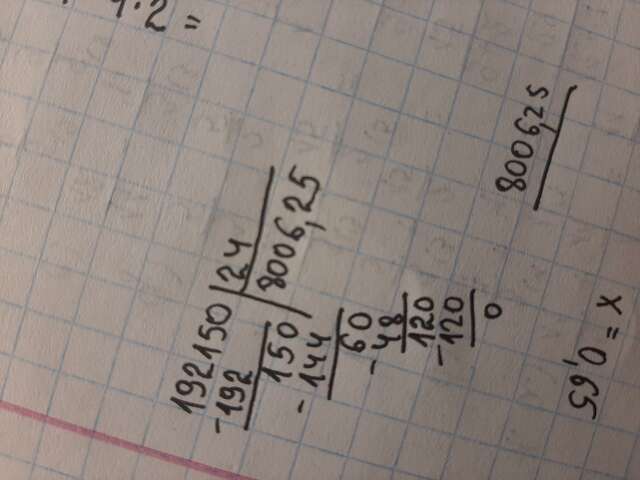 192150 24
-192 8006,25
150
-144
60
-48
120
-120
0
8006,25
x = 0,65